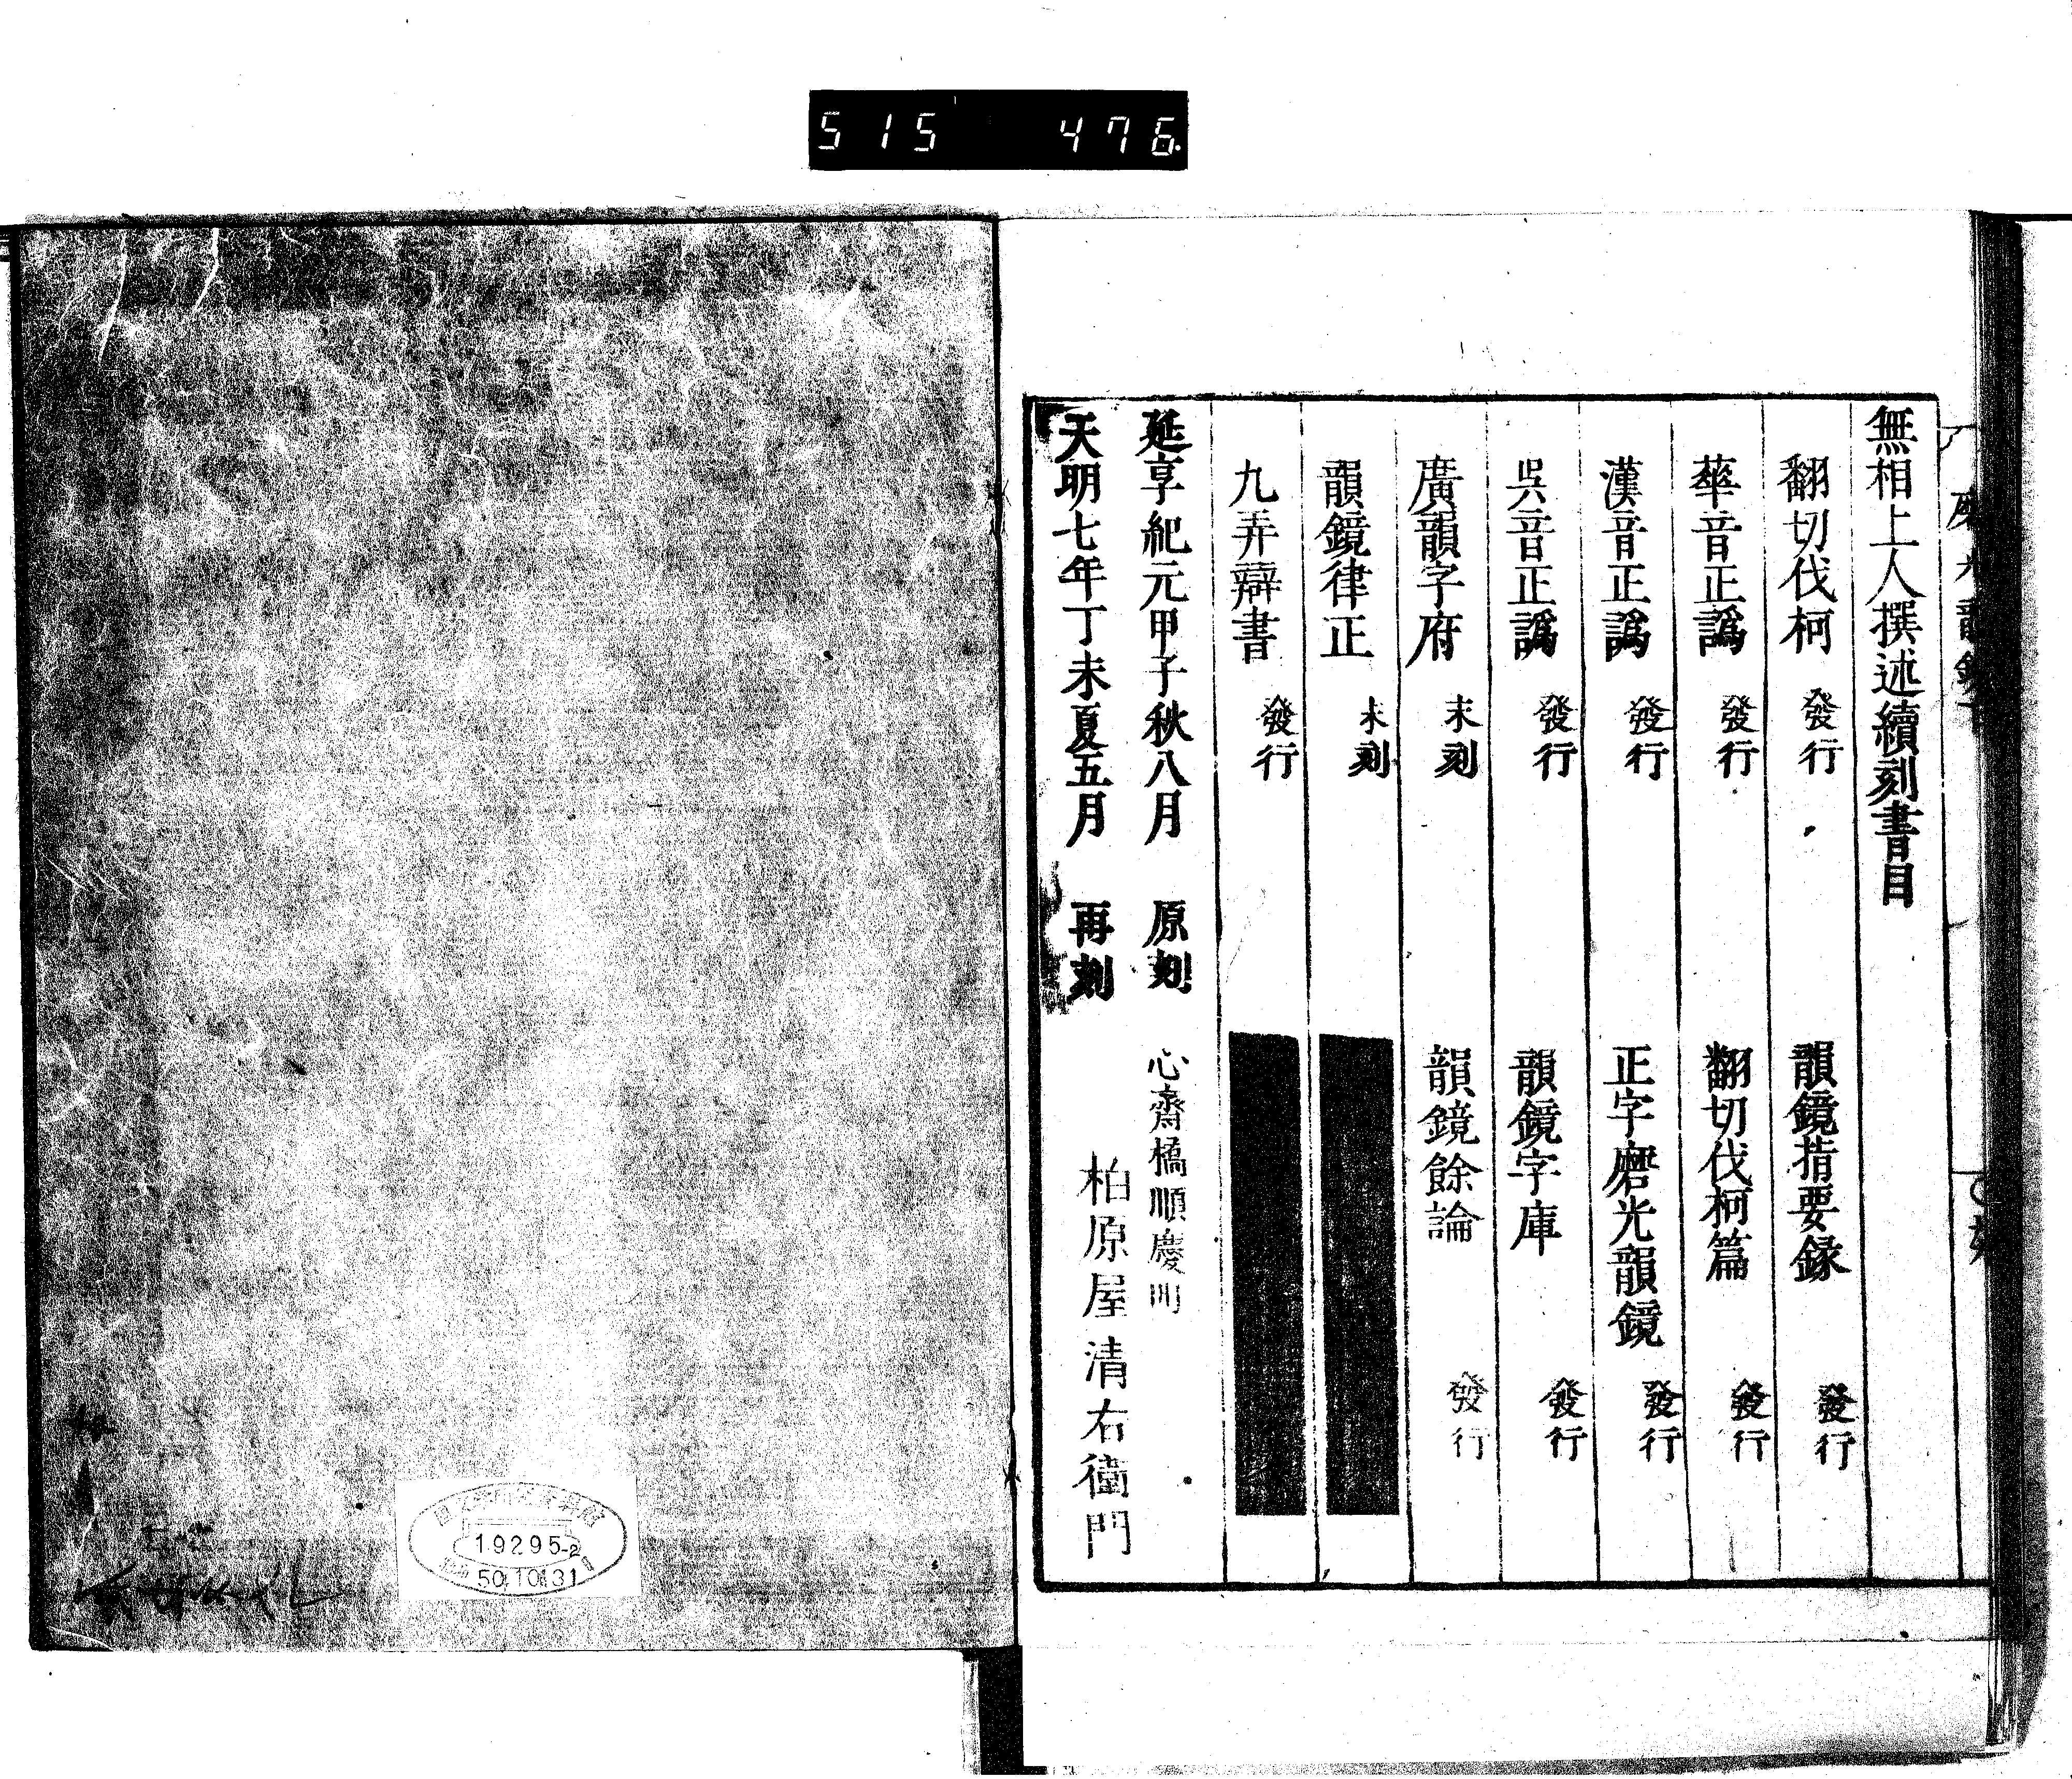 515 476
無相上人撰述續刻書目
翻切伐柯 發行 韻鏡指要録 發行
華音正譌 發行 翻切伐柯篇 發行
漢音正譌 發行 正字磨光韻鏡 發行
呉音正譌 發行 韻鏡字庫 發行
廣韻字府 未刻 韻鏡餘論 發行
韻鏡律正 未刻
九弄辯書 發行
延享紀元甲子秋八月 原刻 心齋橋順慶町
天明七年丁未夏五月 再刻 柏原屋清右衞門
19295-2
50.10.31